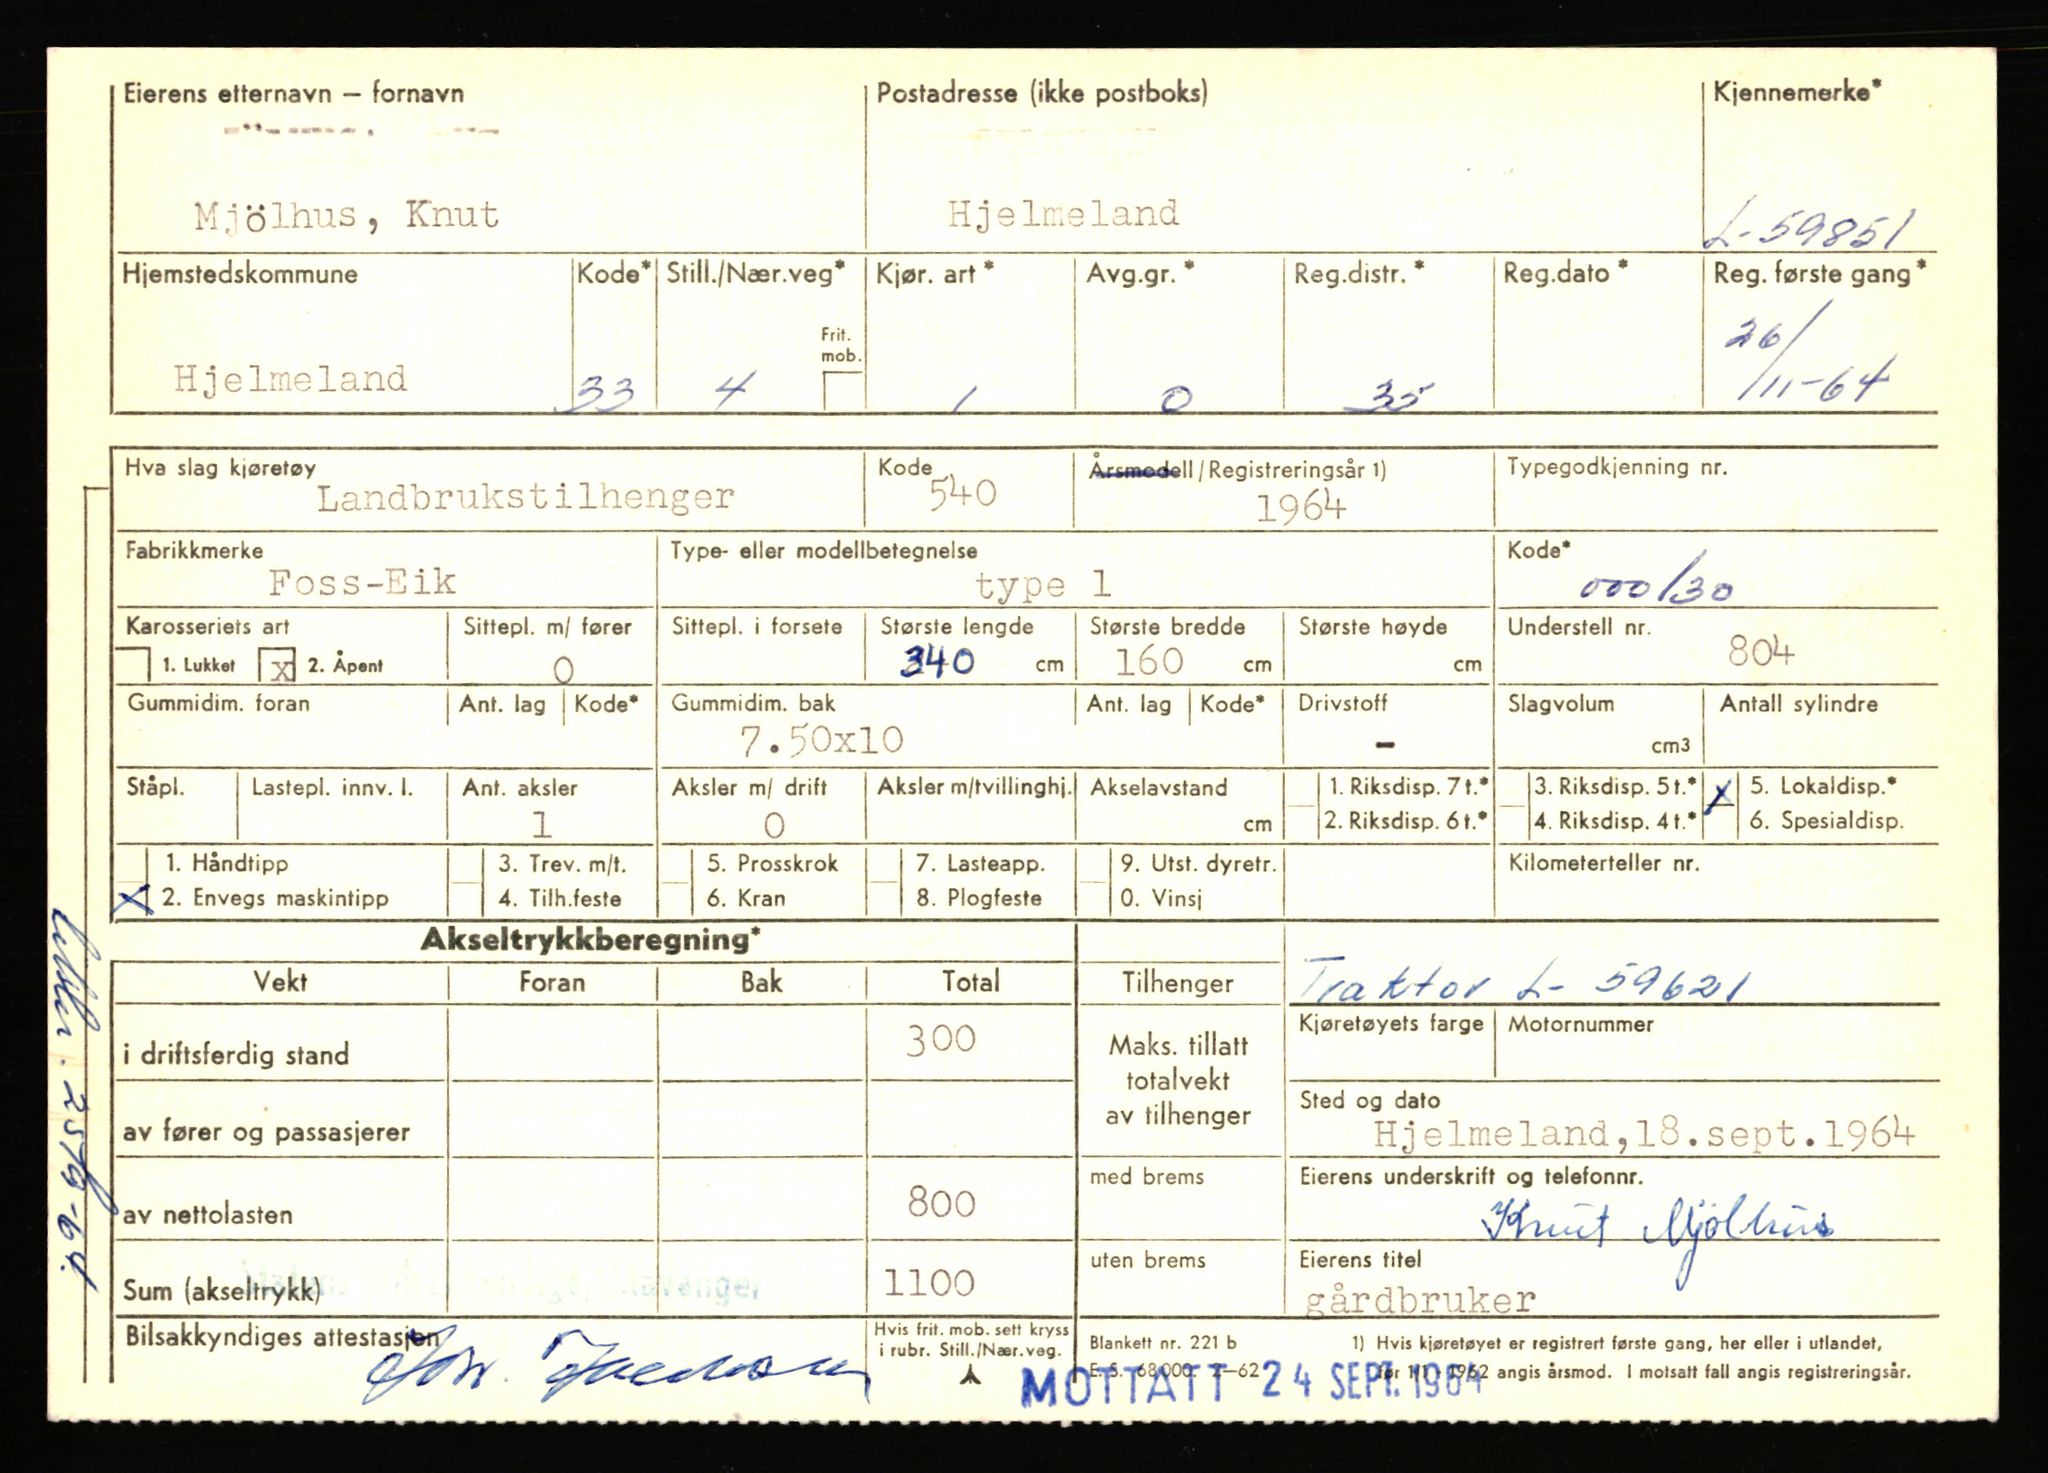 Eierens etternavn – fornavn Postadresse (ikke postboks) Kjennemerke*
Mjölhus, Knut Hjelmeland L-59851
Hjemstedskommune Kode* Still./Nær.veg* Kjør. art* Avg.gr.* Reg.distr.* Reg.dato* Reg. første gang*
Frit. mob.
Hjelmeland 33 4 1 0 35 26/11-64
Hva slag kjøretøy Kode Årsmodell/Registreringsår 1) Typegodkjenning nr.
Landbrukstilhenger 540 1964
Fabrikkmerke Type- eller modellbetegnelse Kode*
Foss-Eik type 1 000/30
Karosseriets art Sittepl. m/ fører Sittepl. i forsete Største lengde Største bredde Største høyde Understell nr.
1. Lukket x 2. Åpent 0 340 cm 160 cm cm 804
Gummidim. foran Ant. lag Kode* Gummidim. bak Ant. lag Kode* Drivstoff Slagvolum Antall sylindre
7.50x10 - cm3
Ståpl. Lastepl. innv. l. Ant. aksler Aksler m/ drift Aksler m/tvillinghj. Akselavstand 1. Riksdisp. 7 t.* 3. Riksdisp. 5 t.* x 5. Lokaldisp.*
1 0 cm 2. Riksdisp. 6 t.* 4. Riksdisp. 4 t.* 6. Spesialdisp.
1. Håndtipp 3. Trev. m/t. 5. Prosskrok 7. Lasteapp. 9. Utst. dyretr. Kilometerteller nr.
x 2. Envegs maskintipp 4. Tilh.feste 6. Kran 8. Plogfeste 0. Vinsj
Akseltrykkberegning*
Vekt Foran Bak Total Tilhenger Traktor L-59621
Kjøretøyets farge Motornummer
i driftsferdig stand 300 Maks. tillatt totalvekt av tilhenger
Sted og dato
av fører og passasjerer Hjelmeland,18.sept.1964
med brems Eierens underskrift og telefonnr.
av nettolasten 800 Knut Mjölhus
uten brems Eierens titel
Sum (akseltrykk) 1100 gårdbruker
Bilsakkyndiges attestasjon Hvis frit. mob. sett kryss i rubr. Still./Nær.veg.
Blankett nr. 221 b 1) Hvis kjøretøyet er registrert første gang, her eller i utlandet,
E. S. 68 000. 2–62 før 1/1 1962 angis årsmod. I motsatt fall angis registreringsår.
MOTTATT 24 SEPT. 1964